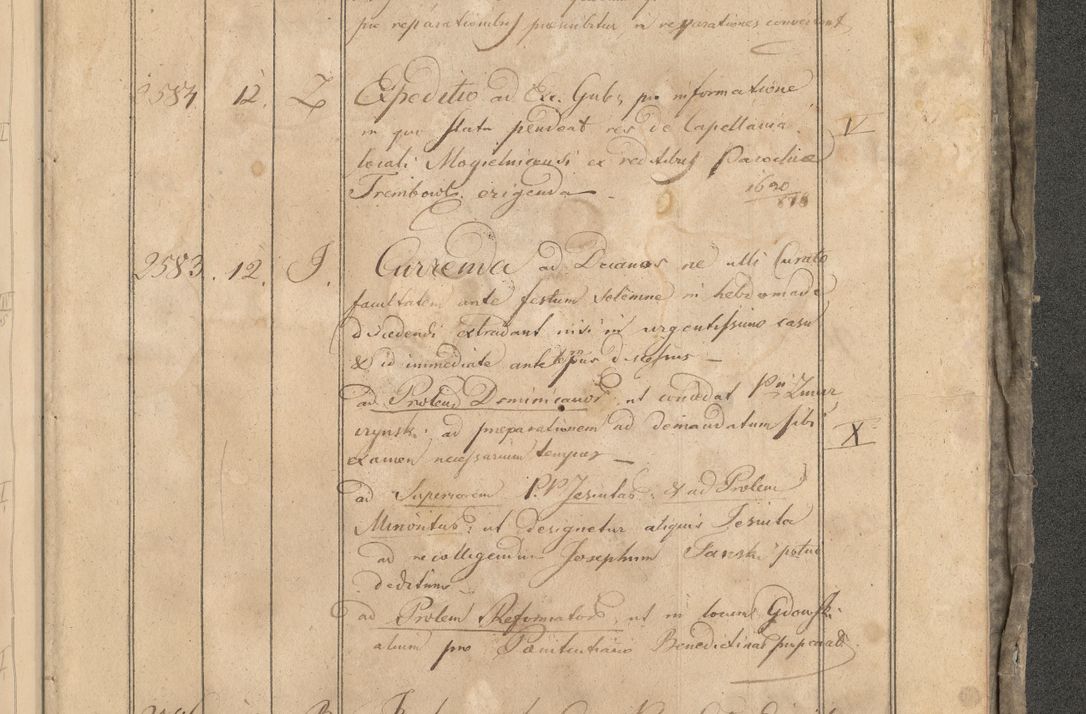 pro reparationibus praescribitur, in reparationes convertant
2584. 12. Z Expeditio ad Exc. Gub; pro informatione V
in quo statu pendeat res de Capellania
locali Mogielnicensi ex reditibus Parochiae
Trembowl. erigenda —
1690/878
2583. 12. J. Currenda ad Decanos ne ulli Curato
facultatem ante festum solemne in hebdomade
discedendi extradant nisi in urgentissimo casu
& id immediate ante tempus discessus —
ad Prolem Dominicanor, ut concedat Pri Zmur
czynski; ad praeparationem ad demandatum sibi X
examen necessarium tempus —
ad Superiorem P.P. Jesuitas: & ad Prolem
Minoritas: ut designetur aliquis Jesuita
ad recolligendum Josephum Panski potui
deditum
ad Prolem Reformator, ut in locum Gdowski
alium pro Paenitentiario Benedictinas